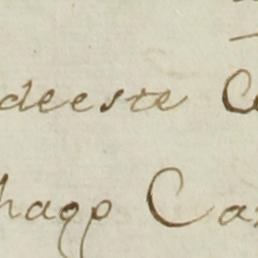 deeste C
hago Ca